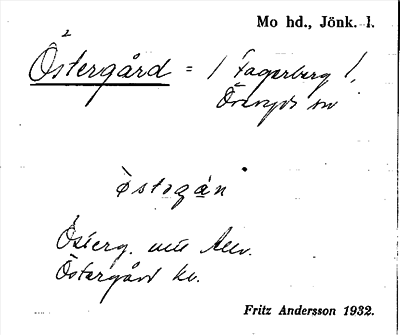 Mo hd., Jönk. l.
2
Östergård = 1 Fagerberg 1,
Öreryds sn
östəgán
Österg. Allv.
Östergård kv.
Fritz Andersson 1932.